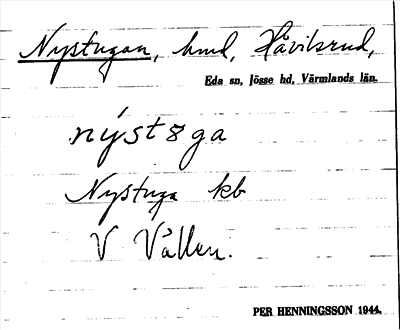 Nystugan, hmd, Håvilsrud,
Eda sn, Jösse hd, Värmlands län.
nýstɜga
Nystuga kb
V Vållen.
PER HENNINGSSON 1944.